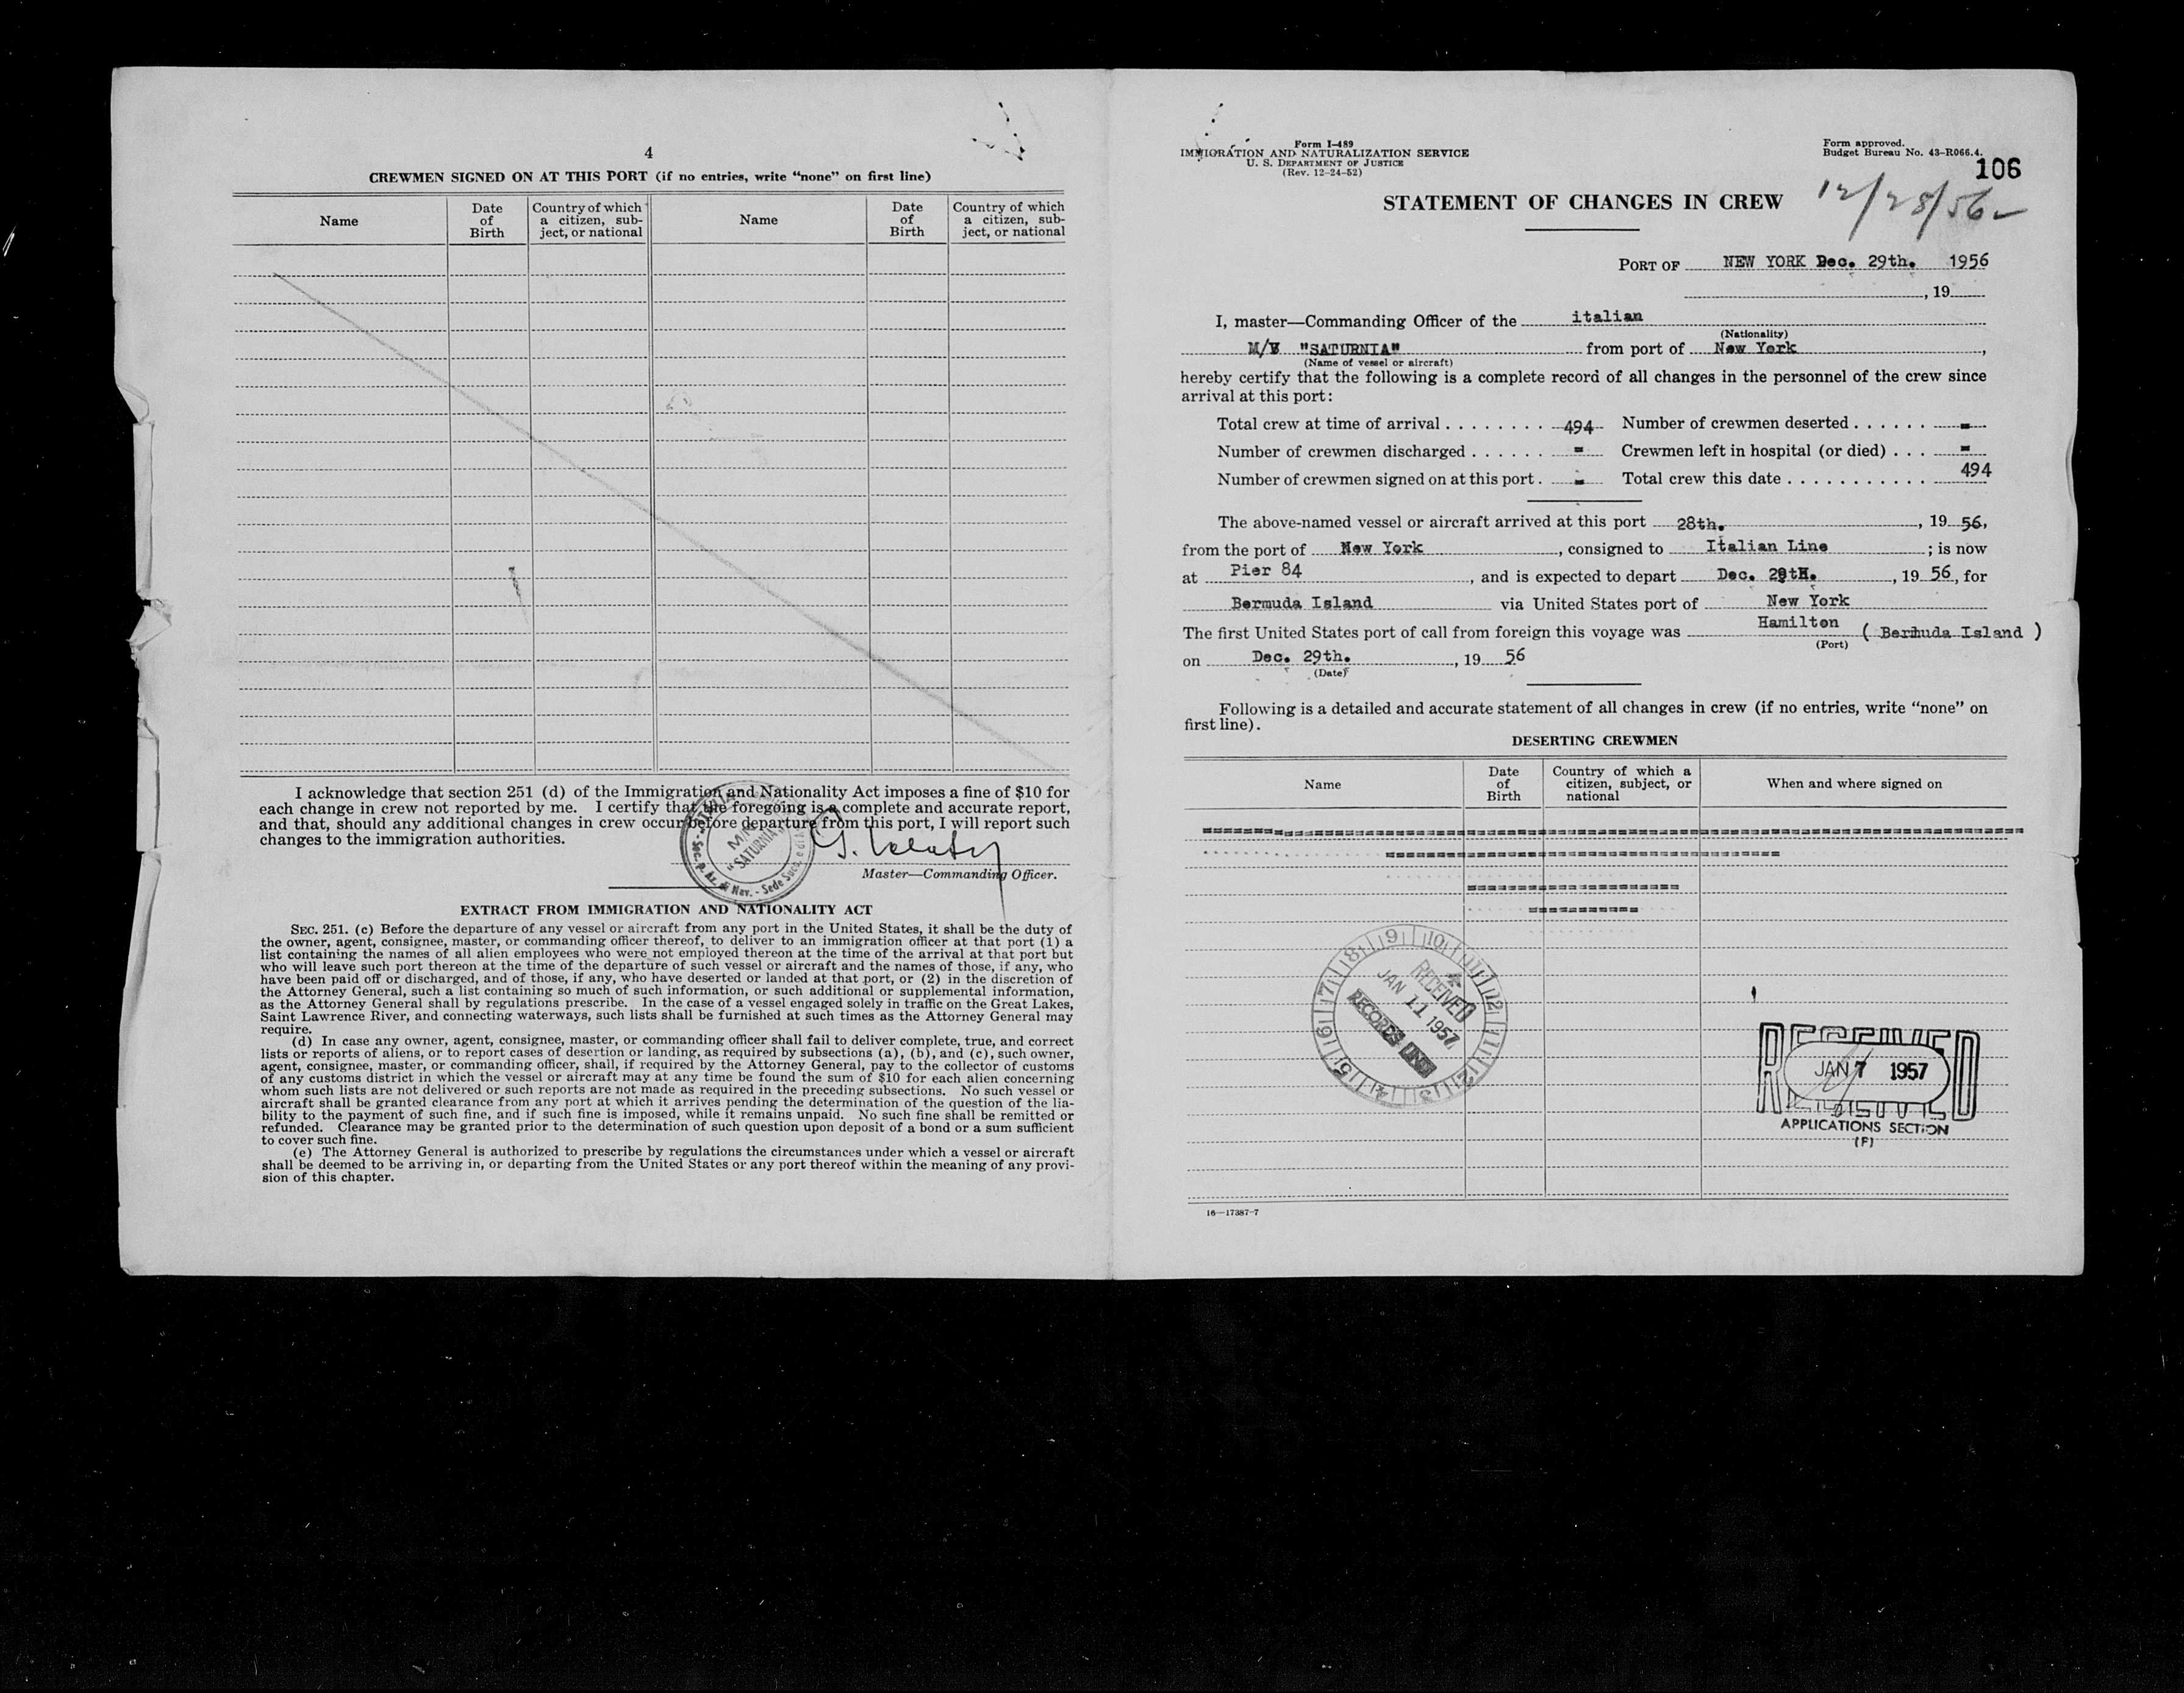 4
CREWMEN SIGNED ON AT THIS PORT (if no entries, write “none” on first line)
Name
Date of Birth
Country of which a citizen, sub-ject, or national
Name
Date of Birth
Country of which a citizen, sub-ject, or national
I acknowledge that section 251 (d) of the Immigration and Nationality Act imposes a fine of $10 for
each change in crew not reported by me. I certify that the foregoing is a complete and accurate report,
and that, should any additional changes in crew occur before departure from this port, I will report such
changes to the immigration authorities.
M/N
"SATURNIA"
Master—Commanding Officer.
EXTRACT FROM IMMIGRATION AND NATIONALITY ACT
SEC. 251. (c) Before the departure of any vessel or aircraft from any port in the United States, it shall be the duty of
the owner, agent, consignee, master, or commanding officer thereof, to deliver to an immigration officer at that port (1) a
list containing the names of all alien employees who were not employed thereon at the time of the arrival at that port but
who will leave such port thereon at the time of the departure of such vessel or aircraft and the names of those, if any, who
have been paid off or discharged, and of those, if any, who have deserted or landed at that port, or (2) in the discretion of
the Attorney General, such a list containing so much of such information, or such additional or supplemental information,
as the Attorney General shall by regulations prescribe. In the case of a vessel engaged solely in traffic on the Great Lakes,
Saint Lawrence River, and connecting waterways, such lists shall be furnished at such times as the Attorney General may
require.
(d) In case any owner, agent, consignee, master, or commanding officer shall fail to deliver complete, true, and correct
lists or reports of aliens, or to report cases of desertion or landing, as required by subsections (a), (b), and (c), such owner,
agent, consignee, master, or commanding officer, shall, if required by the Attorney General, pay to the collector of customs
of any customs district in which the vessel or aircraft may at any time be found the sum of $10 for each alien concerning
whom such lists are not delivered or such reports are not made as required in the preceding subsections. No such vessel or
aircraft shall be granted clearance from any port at which it arrives pending the determination of the question of the lia-
bility to the payment of such fine, and if such fine is imposed, while it remains unpaid. No such fine shall be remitted or
refunded. Clearance may be granted prior to the determination of such question upon deposit of a bond or a sum sufficient
to cover such fine.
(e) The Attorney General is authorized to prescribe by regulations the circumstances under which a vessel or aircraft
shall be deemed to be arriving in, or departing from the United States or any port thereof within the meaning of any provi-
sion of this chapter.
Form I-489
IMMIGRATION AND NATURALIZATION SERVICE
U. S. DEPARTMENT OF JUSTICE
(Rev. 12-24-52)
Form approved.
Budget Bureau No. 43-R066.4.
106
STATEMENT OF CHANGES IN CREW
12/28/56
PORT OF NEW YORK Dec. 29th. 1956
, 19
I, master—Commanding Officer of the italian
(Nationality)
M/V "SATURNIA" from port of New York,
(Name of vessel or aircraft)
hereby certify that the following is a complete record of all changes in the personnel of the crew since
arrival at this port:
Total crew at time of arrival . . . . . . . . 494 Number of crewmen deserted . . . . . . -
Number of crewmen discharged . . . . . . - Crewmen left in hospital (or died) . . . -
Number of crewmen signed on at this port . - Total crew this date . . . . . . . . . . . 494
The above-named vessel or aircraft arrived at this port 28th. , 19 56,
from the port of New York, consigned to Italian Line ; is now
at Pier 84, and is expected to depart Dec. 29tH. , 19 56, for
Bermuda Island via United States port of New York
The first United States port of call from foreign this voyage was Hamilton ( Bermuda Island )
(Port)
on Dec. 29th. , 19 56
(Date)
Following is a detailed and accurate statement of all changes in crew (if no entries, write “none” on
first line).
DESERTING CREWMEN
Name
Date of Birth
Country of which a citizen, subject, or national
When and where signed on
9 10 11 12 1 2 3 4 5 6 7 8
RECEIVED
JAN 11 1957
RECORDS UNIT
RECEIVED
JAN 7 1957
RECEIVED
APPLICATIONS SECTION
(F)
16—17387-7